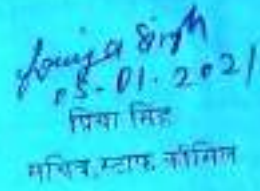 Singh
05-01-2021
प्रिया सिंह
सचिव, स्टाफ कौंसिल